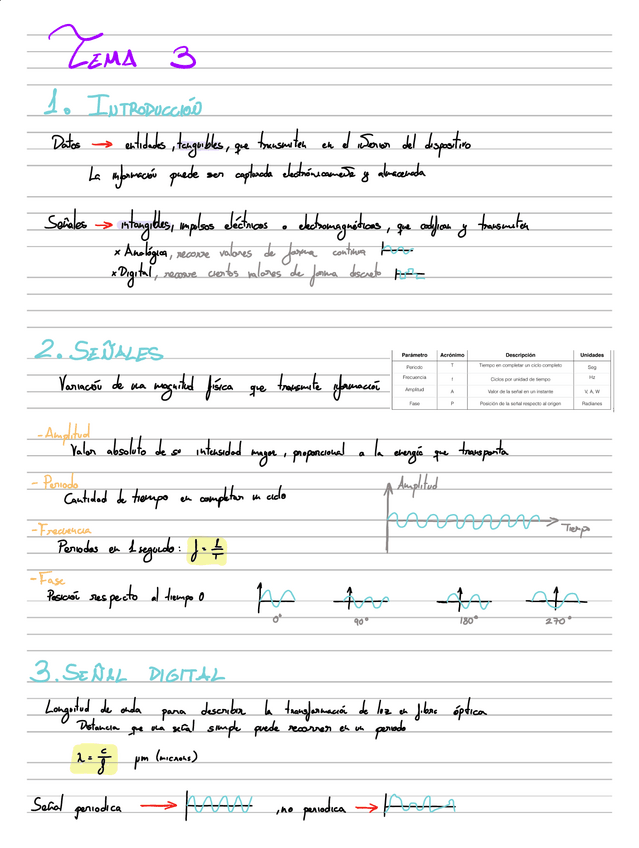 TEMA 3
1. INTRODUCCIÓN
Datos → entidades, tanguibles, que transmiten en el interior del dispositivo
La información puede ser capturada electrónicamente y almacenada
Señales → intangibles, impulsos eléctricos o electromagnéticos, que codifican y transmiten
x Analógica, recorre valores de forma continua
x Digital, recorre ciertos valores de forma discreta
2. SEÑALES
Variación de una magnitud física que transmite información
Parámetro Acrónimo Descripción Unidades
Periodo T Tiempo en completar un ciclo completo Seg
Frecuencia f Ciclos por unidad de tiempo Hz
Amplitud A Valor de la señal en un instante V, A, W
Fase P Posición de la señal respecto al origen Radianes
- Amplitud
Valor absoluto de su intensidad mayor, proporcional a la energía que transporta
- Periodo
Cantidad de tiempo en completar un ciclo
Amplitud
Tiempo
- Frecuencia
Periodos en 1 segundo: f = 1/T
- Fase
Posición respecto al tiempo 0
0° 90° 180° 270°
3. SEÑAL DIGITAL
Longitud de onda para describir la transformación de luz en fibra óptica
Distancia que una señal simple puede recorrer en un periodo
λ = c/f µm (microns)
Señal periodica → , no periodica →